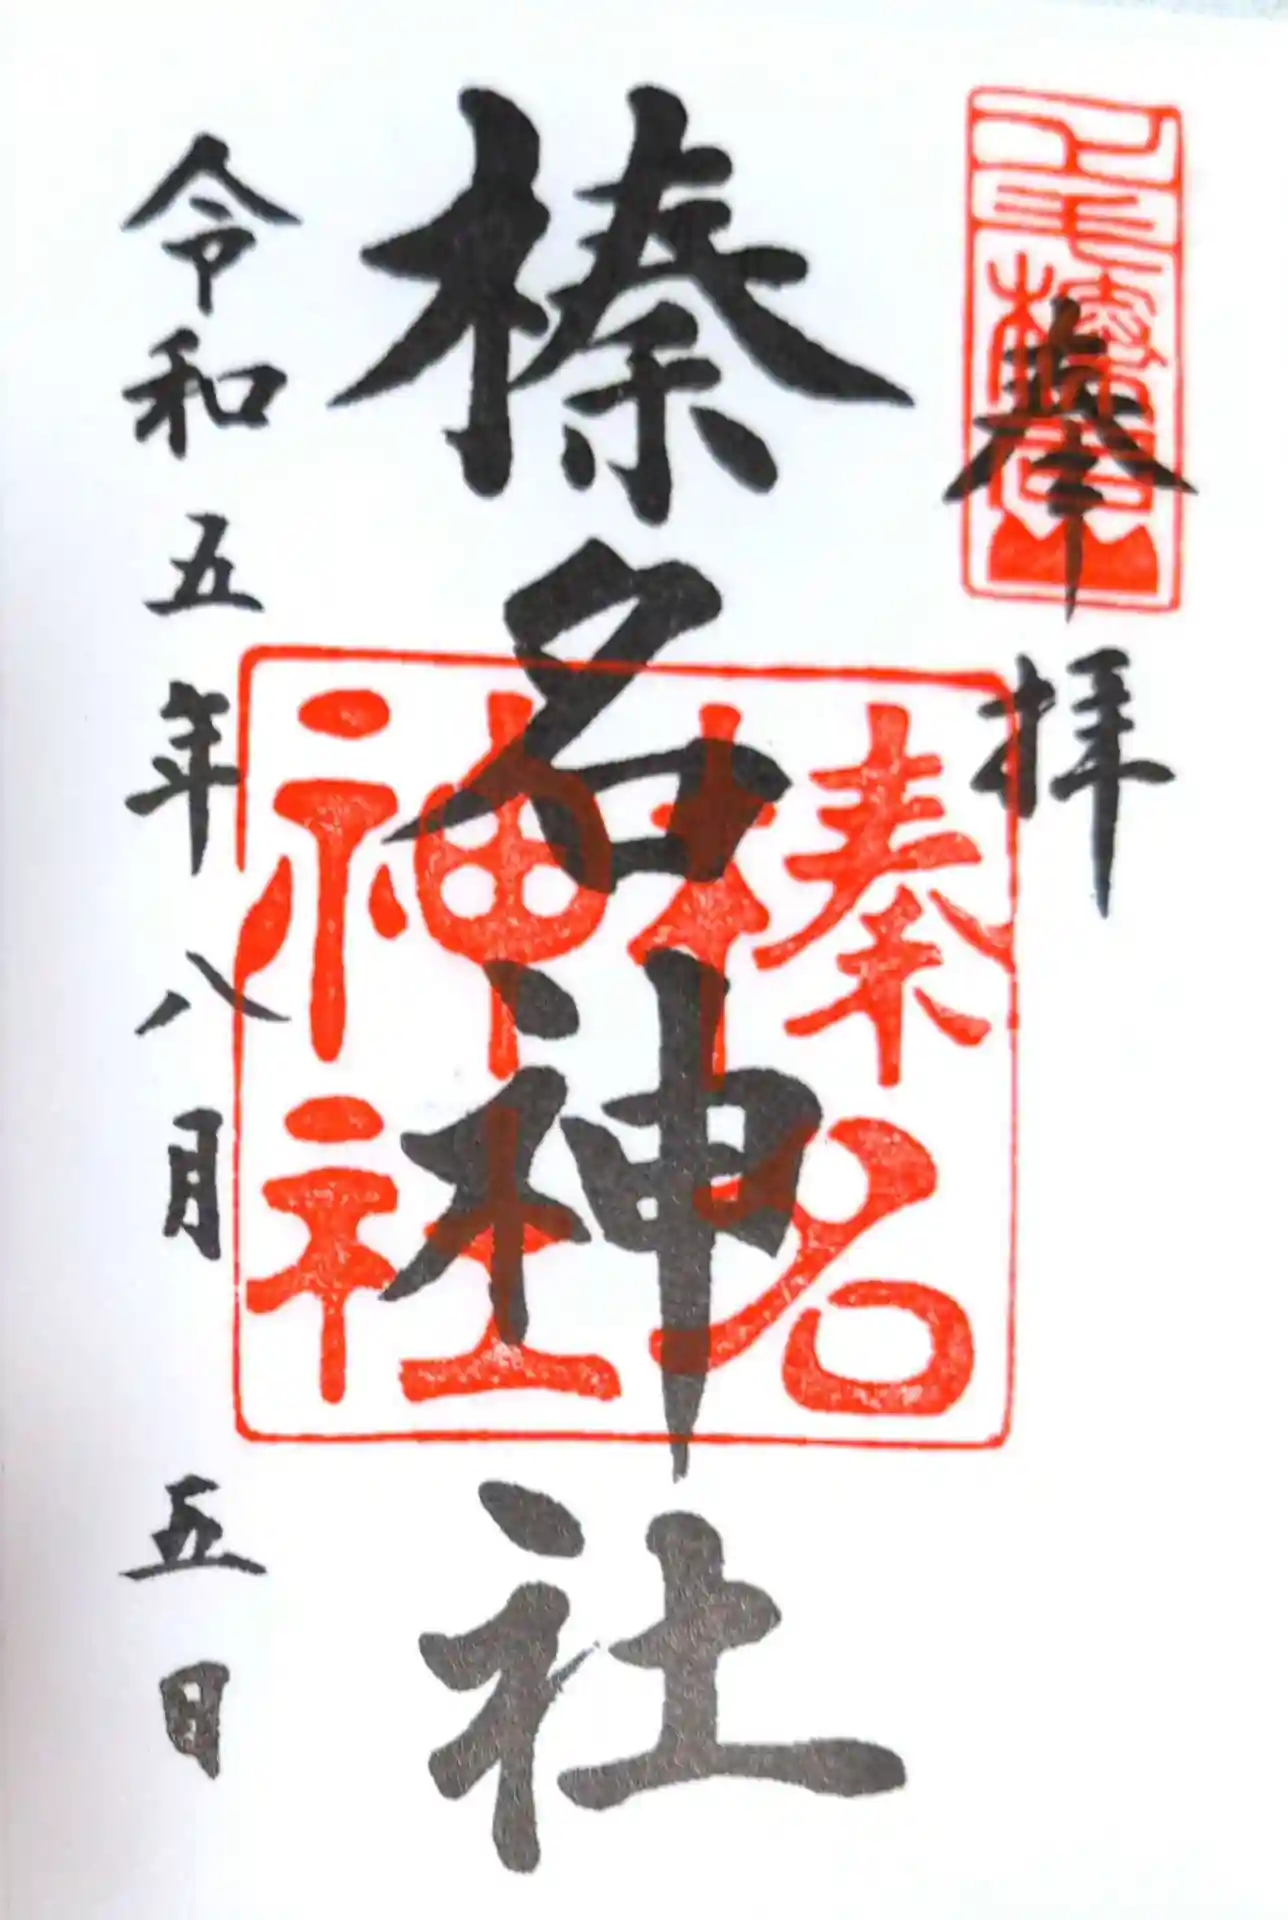 奉拝
榛名神社
榛名神社
令和五年八月五日